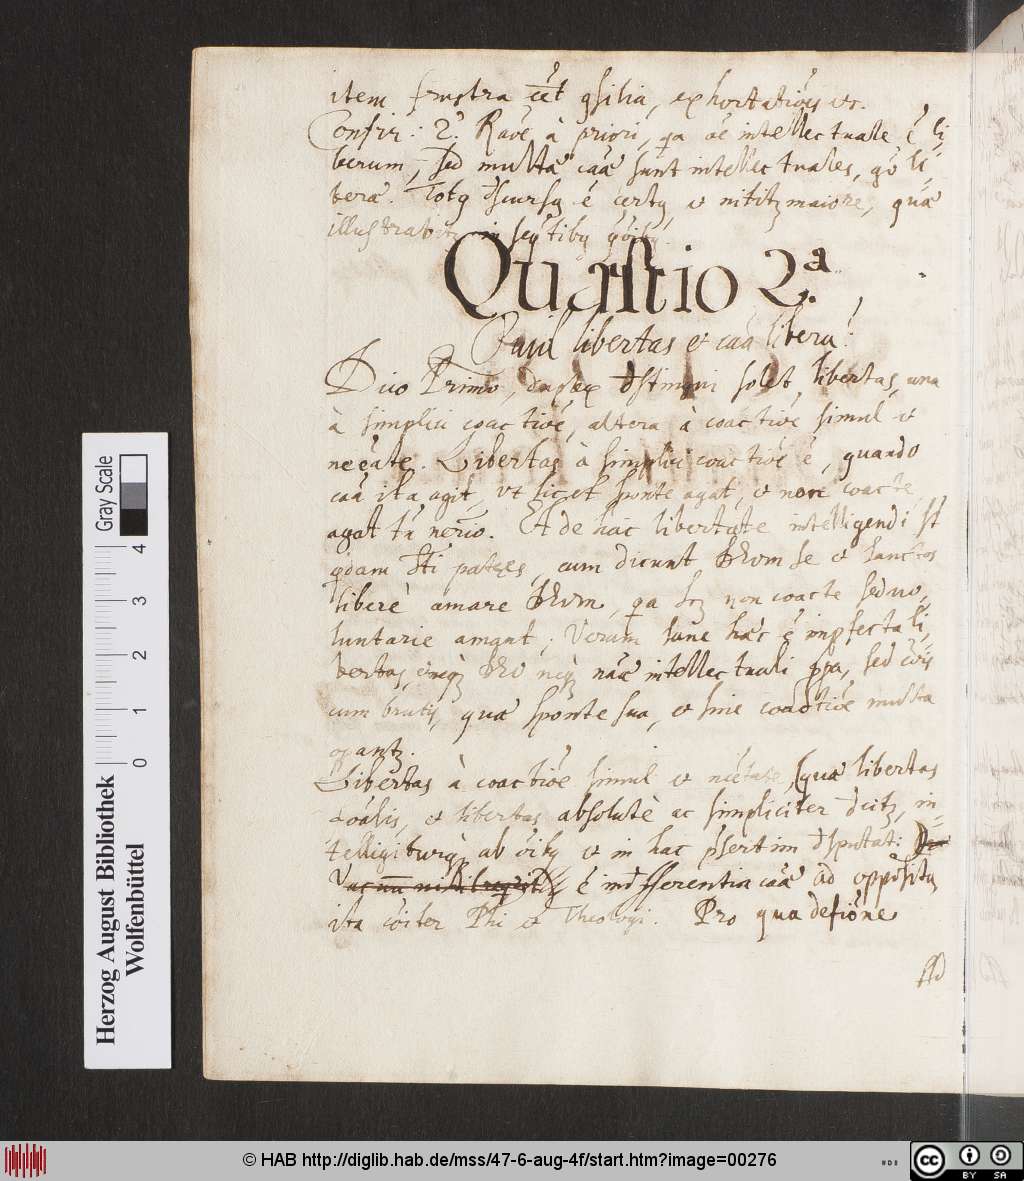 item frustra eēt ꝯsilia, exhortatiōes etc.
Confir: 2º. Raōe à priori, qa oē intellectuale ē li-
berum, sed multæ caæ sunt intellectuales, gº li-
beræ. Totq dscursq ē certq, et nititz maiore, quæ
illustrabitz in seqtibq
Quæstio 2.ª
Quid libertas et caa libera?
Dico Primò, duplex dstingui solet libertas, una
à simplici coactiōe, altera à coactiōe simul et
necate. Libertas à simplici coactiōe ē, quando
caa ita agit, ut licet sponte agat, et non coacte
agat tn nerio. Et de hac libertate intelligendi st
qdam Sti patres, cum dicunt Deum se et sanctos
liberè amare Deum, qa non coacte sed vo-
luntarie amant; Verum sane hæc ē impfecta li-
bertas, neqz Deo neqz naæ intellectuali ppa, sed cois
cum brutis, quæ sponte sua, et sine coactiōe multa
opantz.
Libertas à coactiōe simul et nētate, quæ libertas
et libertas absolutè ac simpliciter dcitz, in-
telligiturqz ab oibq et in hac psertim dsputat:
ē indfferentia caæ ad oppositū
ita cōiter Phi et Theologi. Pro qua defiōne
Ad
Herzog August Bibliothek
Wolfenbüttel
Gray Scale
0 1 2 3 4
© HAB http://diglib.hab.de/mss/47-6-aug-4f/start.htm?image=00276
cc BY SA